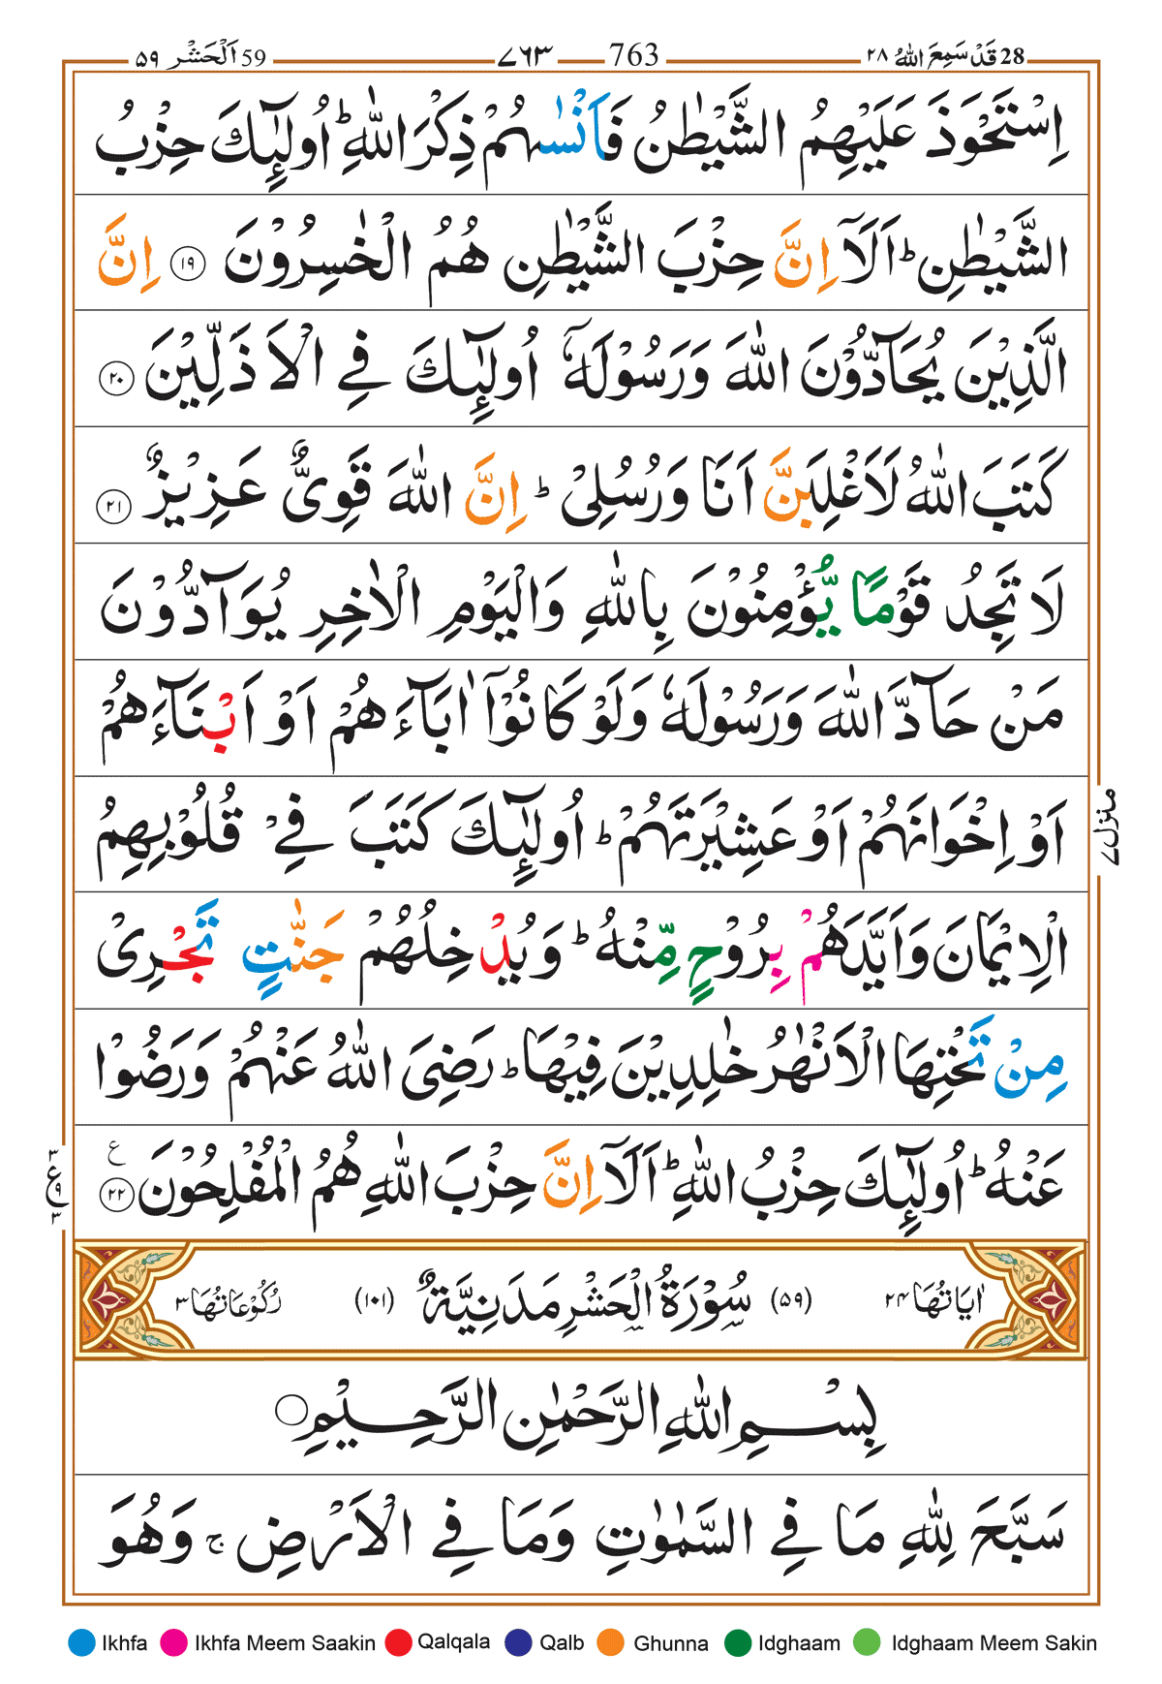 28 قَدْ سَمِعَ اللهُ ٢٨ 763 ٧٦٣ 59 اَلْحَشْر ٥٩
اِسْتَحْوَذَ عَلَيْهِمُ الشَّيْطٰنُ فَاَنْسٰىهُمْ ذِكْرَ اللّٰهِ ؕ اُولٰٓئِكَ حِزْبُ
الشَّيْطٰنِ ؕ اَلَاۤ اِنَّ حِزْبَ الشَّيْطٰنِ هُمُ الْخٰسِرُوْنَ ١٩ اِنَّ
الَّذِيْنَ يُحَآدُّوْنَ اللّٰهَ وَرَسُوْلَهٗۤ اُولٰٓئِكَ فِي الْاَذَلِّيْنَ ٢٠
كَتَبَ اللّٰهُ لَاَغْلِبَنَّ اَنَا وَرُسُلِيْ ؕ اِنَّ اللّٰهَ قَوِيٌّ عَزِيْزٌ ٢١
لَا تَجِدُ قَوْمًا يُّؤْمِنُوْنَ بِاللّٰهِ وَالْيَوْمِ الْاٰخِرِ يُوَآدُّوْنَ
مَنْ حَآدَّ اللّٰهَ وَرَسُوْلَهٗ وَلَوْ كَانُوْۤا اٰبَآءَهُمْ اَوْ اَبْنَآءَهُمْ
اَوْ اِخْوَانَهُمْ اَوْ عَشِيْرَتَهُمْ ؕ اُولٰٓئِكَ كَتَبَ فِيْ قُلُوْبِهِمُ
الْاِيْمَانَ وَاَيَّدَهُمْ بِرُوْحٍ مِّنْهُ ؕ وَيُدْخِلُهُمْ جَنّٰتٍ تَجْرِيْ
مِنْ تَحْتِهَا الْاَنْهٰرُ خٰلِدِيْنَ فِيْهَا ؕ رَضِيَ اللّٰهُ عَنْهُمْ وَرَضُوْا
عَنْهُ ؕ اُولٰٓئِكَ حِزْبُ اللّٰهِ ؕ اَلَاۤ اِنَّ حِزْبَ اللّٰهِ هُمُ الْمُفْلِحُوْنَ ٢٢ ع
منزل ٧
٣ ع ٩ ٣
اٰيَاتُهَا ٢٤ (٥٩) سُوْرَةُ الْحَشْرِ مَدَنِيَّةٌ (١٠١) رُكُوْعَاتُهَا ٣
بِسْمِ اللّٰهِ الرَّحْمٰنِ الرَّحِيْمِ
سَبَّحَ لِلّٰهِ مَا فِي السَّمٰوٰتِ وَمَا فِي الْاَرْضِ ۚ وَهُوَ
Ikhfa Ikhfa Meem Saakin Qalqala Qalb Ghunna Idghaam Idghaam Meem Sakin